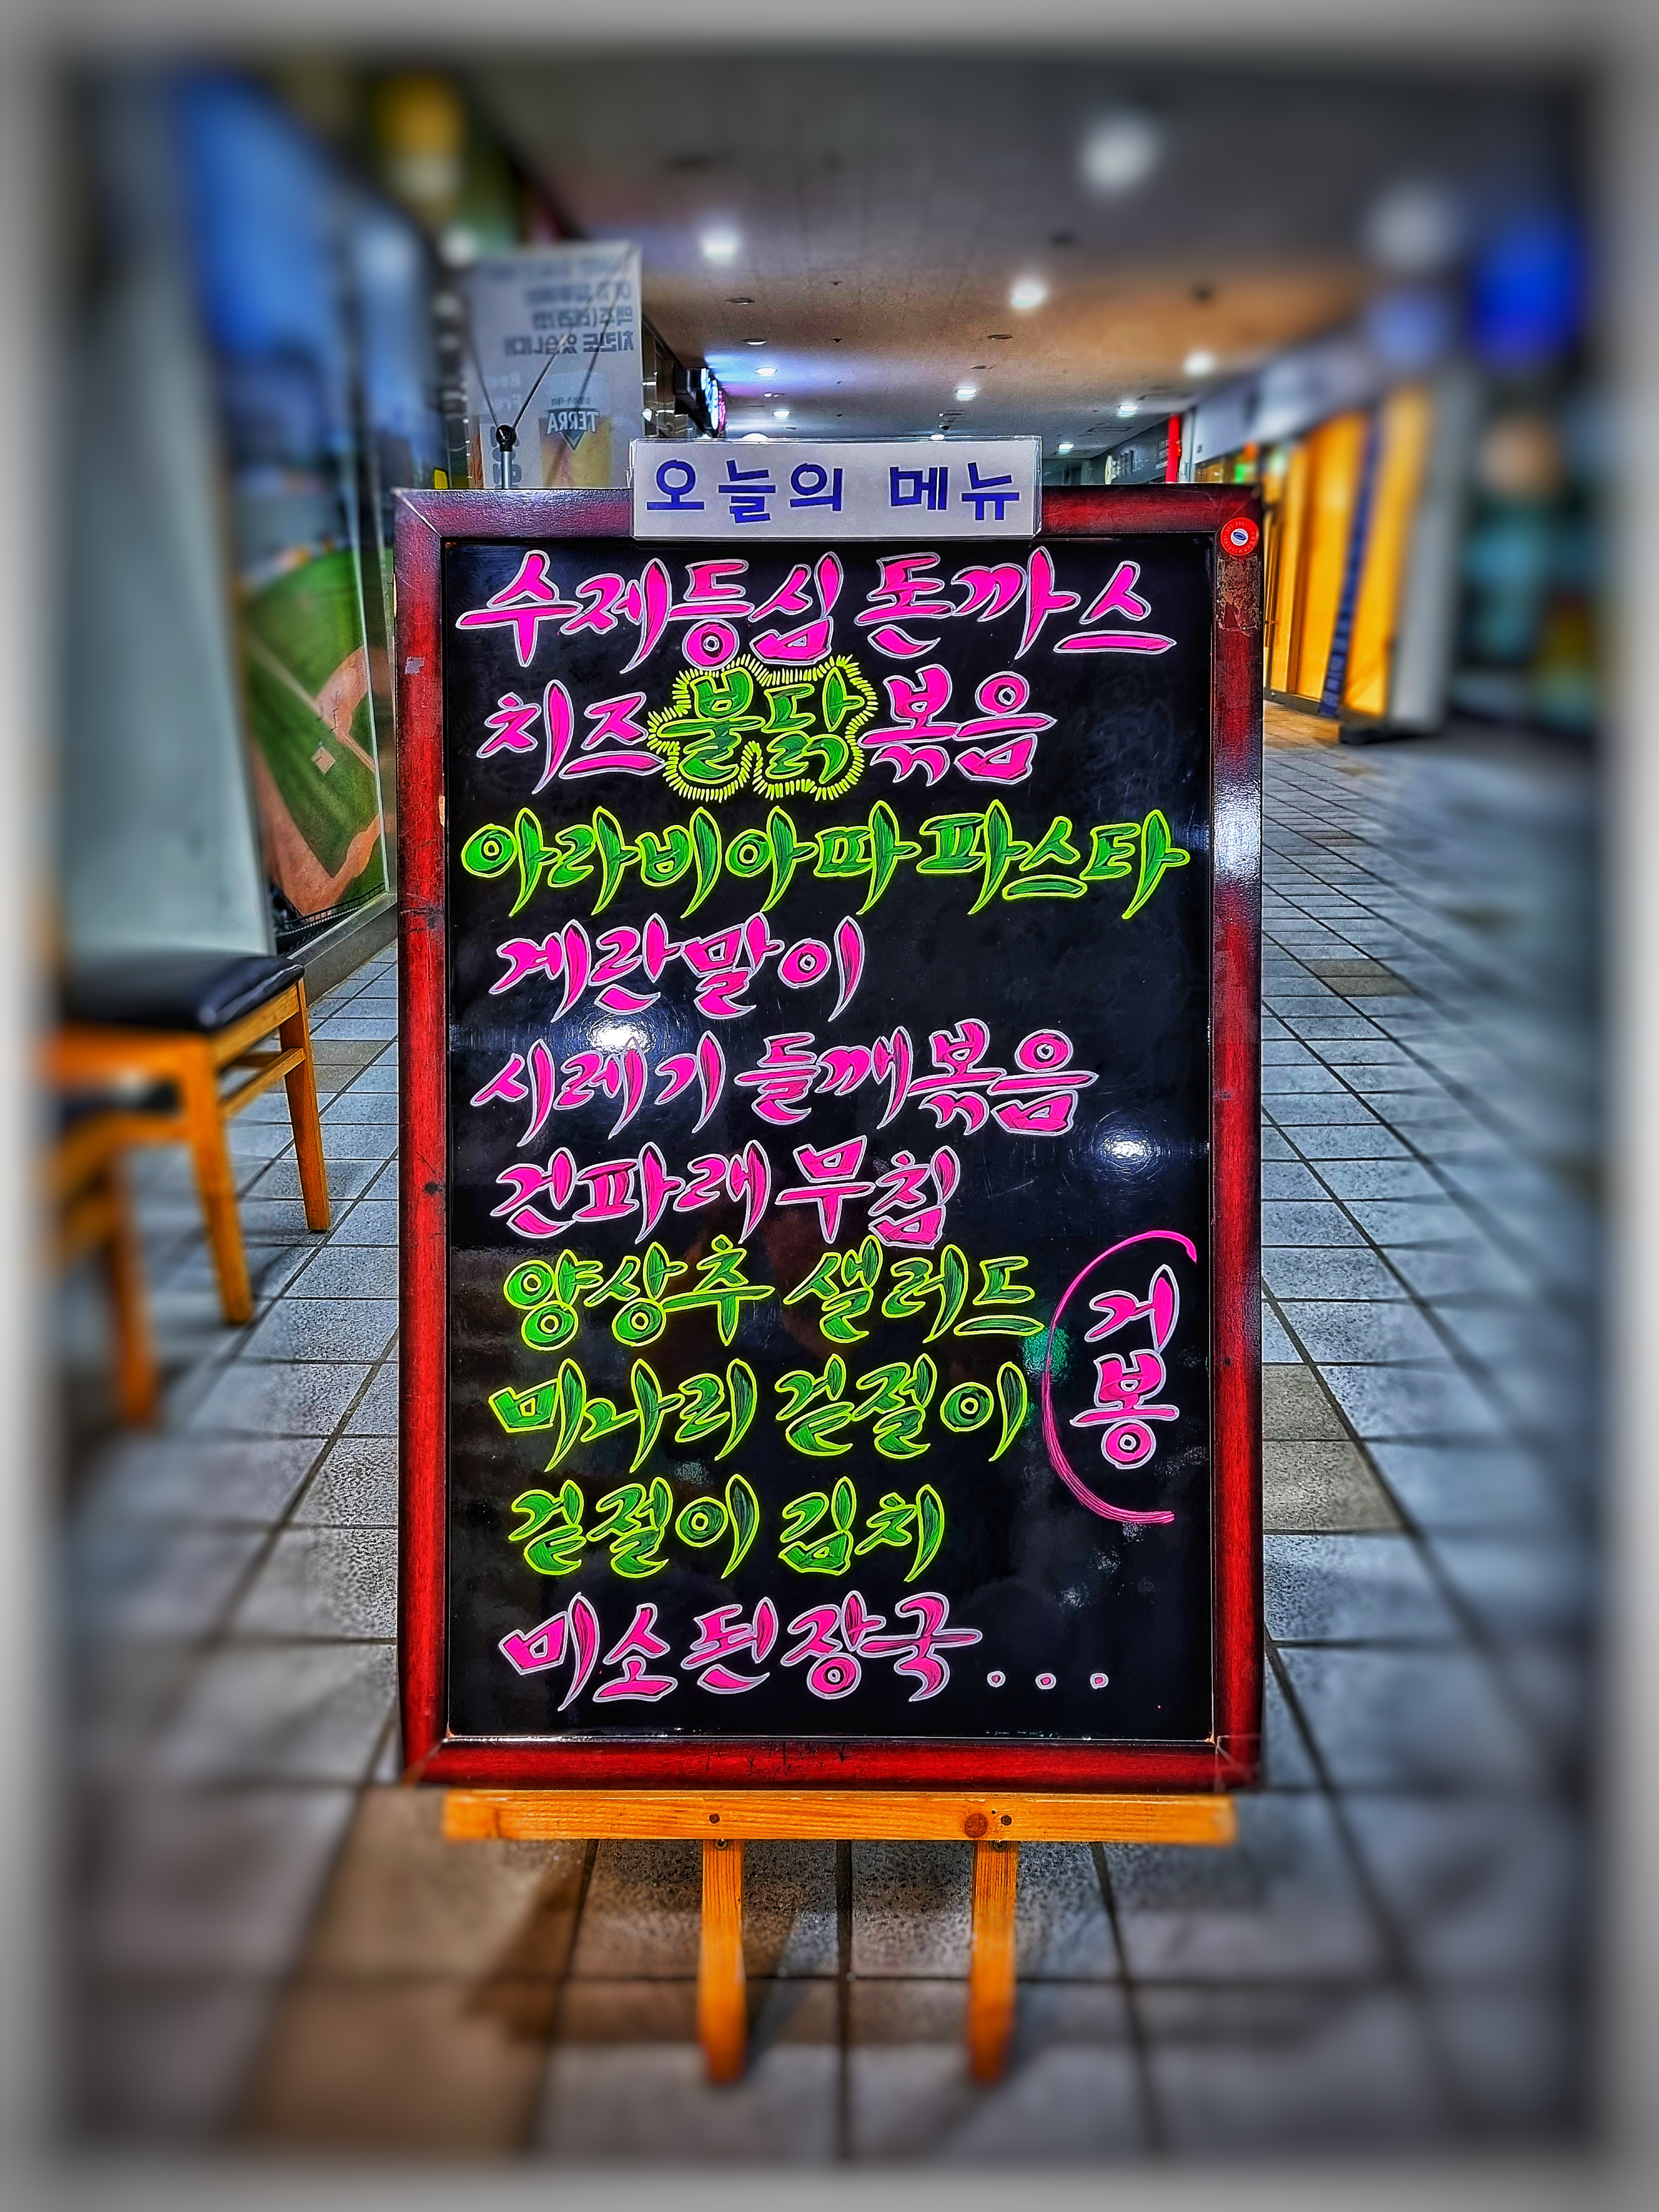 오늘의 메뉴
수제등심 돈까스
치즈불닭볶음
아라비아따 파스타
계란말이
시레기 들깨볶음
건파래 무침
양상추 샐러드
미나리 겉절이
겉절이 김치
미소된장국...
(거봉
TERRA